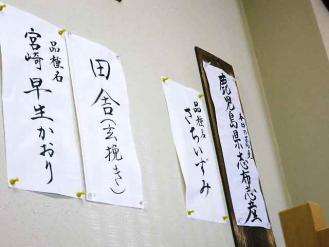 鹿児島県志布志産
品種名
さちいずみ
田舎(玄挽き)
品種名
宮崎早生かおり